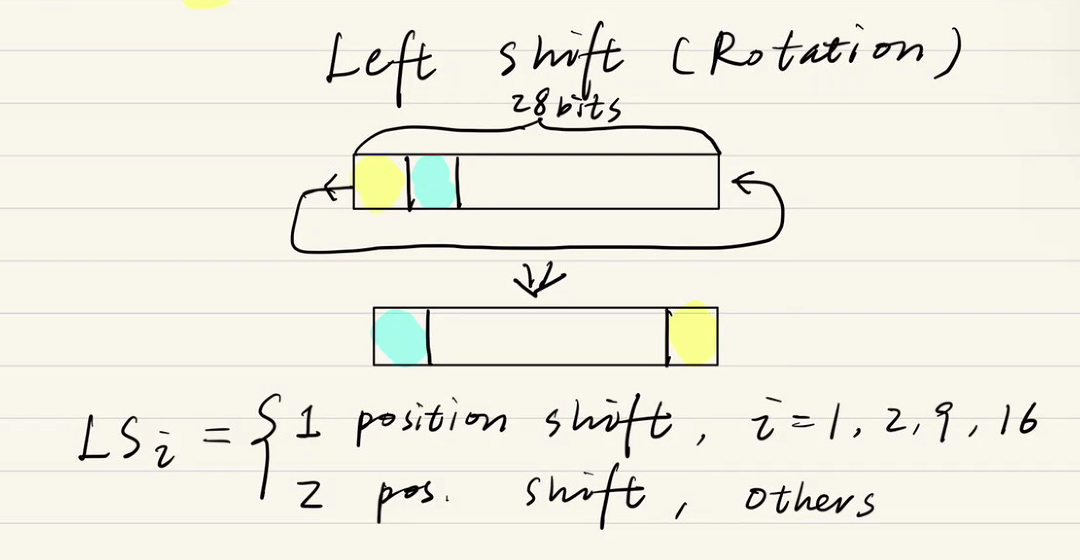 Left shift (Rotation)
28 bits
LSi = { 1 position shift, i = 1, 2, 9, 16
2 pos. shift, others